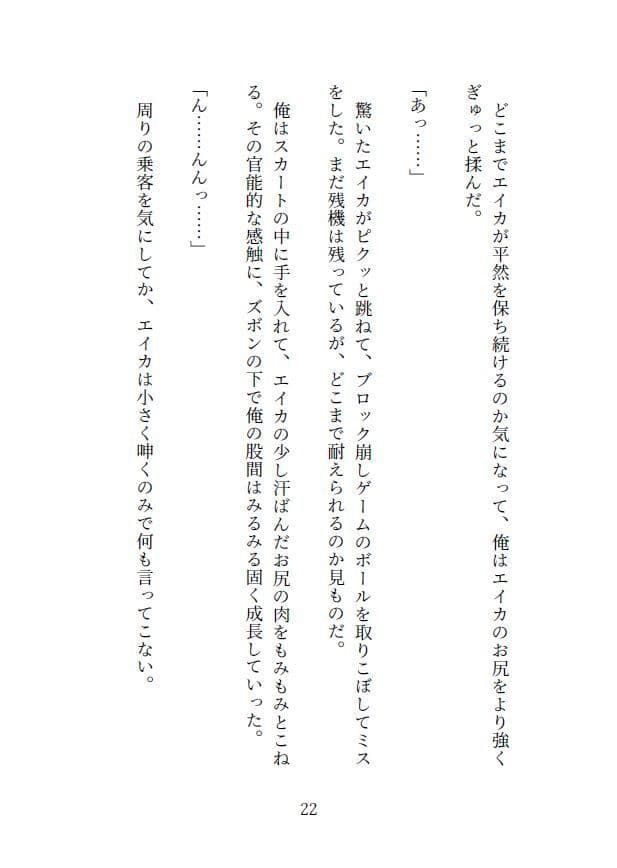 どこまでエイカが平然を保ち続けるのか気になって、俺はエイカのお尻をより強く
ぎゅっと揉んだ。
「あっ……」
驚いたエイカがピクッと跳ねて、ブロック崩しゲームのボールを取りこぼしてミス
をした。まだ残機は残っているが、どこまで耐えられるのか見ものだ。
俺はスカートの中に手を入れて、エイカの少し汗ばんだお尻の肉をもみもみとこね
る。その官能的な感触に、ズボンの下で俺の股間はみるみる固く成長していった。
「ん……んんっ……」
周りの乗客を気にしてか、エイカは小さく呻くのみで何も言ってこない。
22